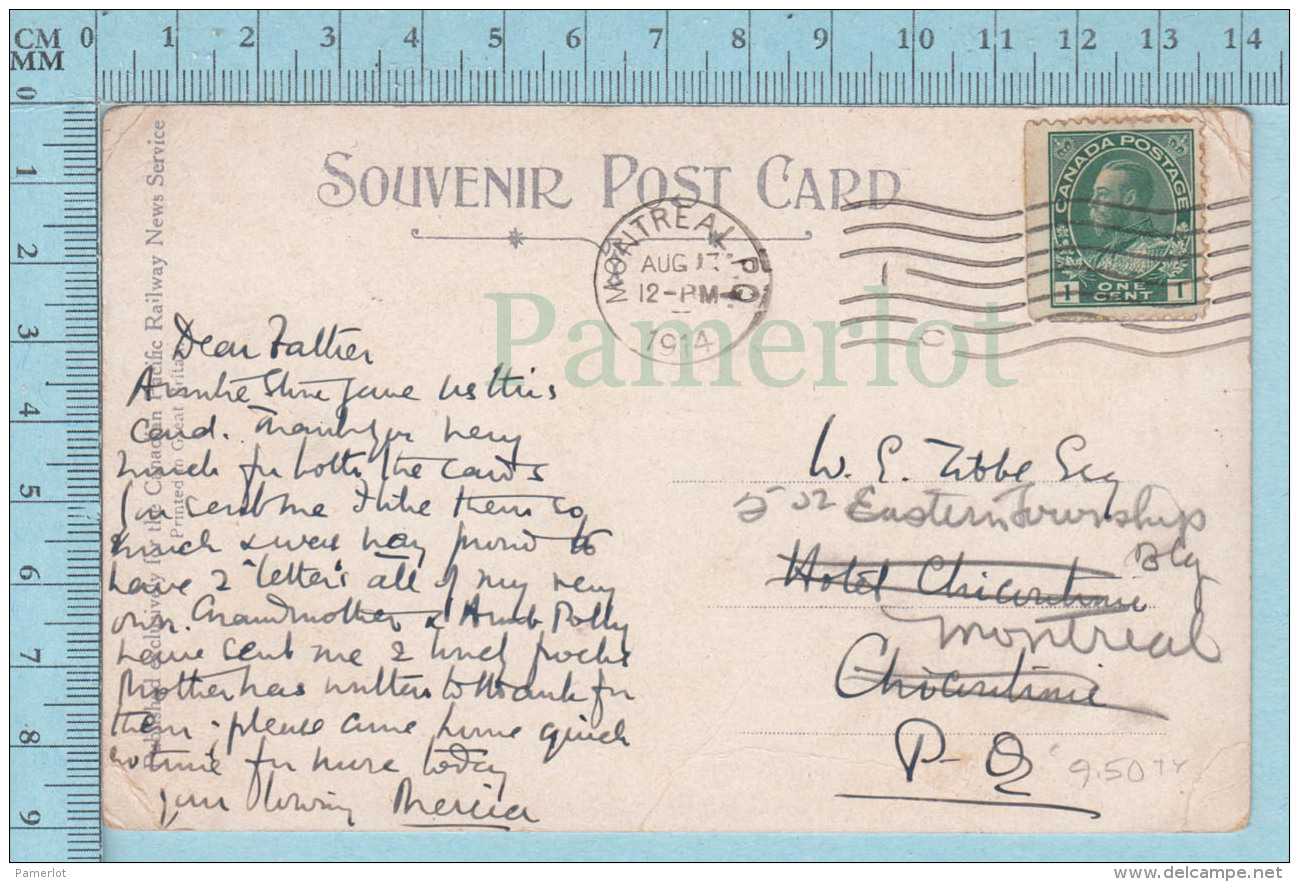 CM 0 1 2 3 4 5 6 7 8 9 10 11 12 13 14
MM
0 1 2 3 4 5 6 7 8 9
SOUVENIR POST CARD
CANADA POSTAGE
1 ONE CENT 1
MONTREAL P.Q.
AUG 17
12-PM
1914
Pamerlot
Published exclusively for the Canadian Pacific Railway News Service
Printed in Great Britain
Dear Father
Auntie gave us this
card. Thank you very
much for both the cards
you sent me I like them so
much & was very proud to
have 2 letters all of my very
own. Grandmother & Aunt Polly
have sent me 2 lovely frocks
Mother has written to thank for
them, please come home quick
no time for more today
your loving Mercia
W. E. Tibbe Esq
502 Eastern Township
Blg
Hotel Chicoutimi
Montreal
Chicoutimi
P-Q
9.50
Pamerlot
www.delcampe.net